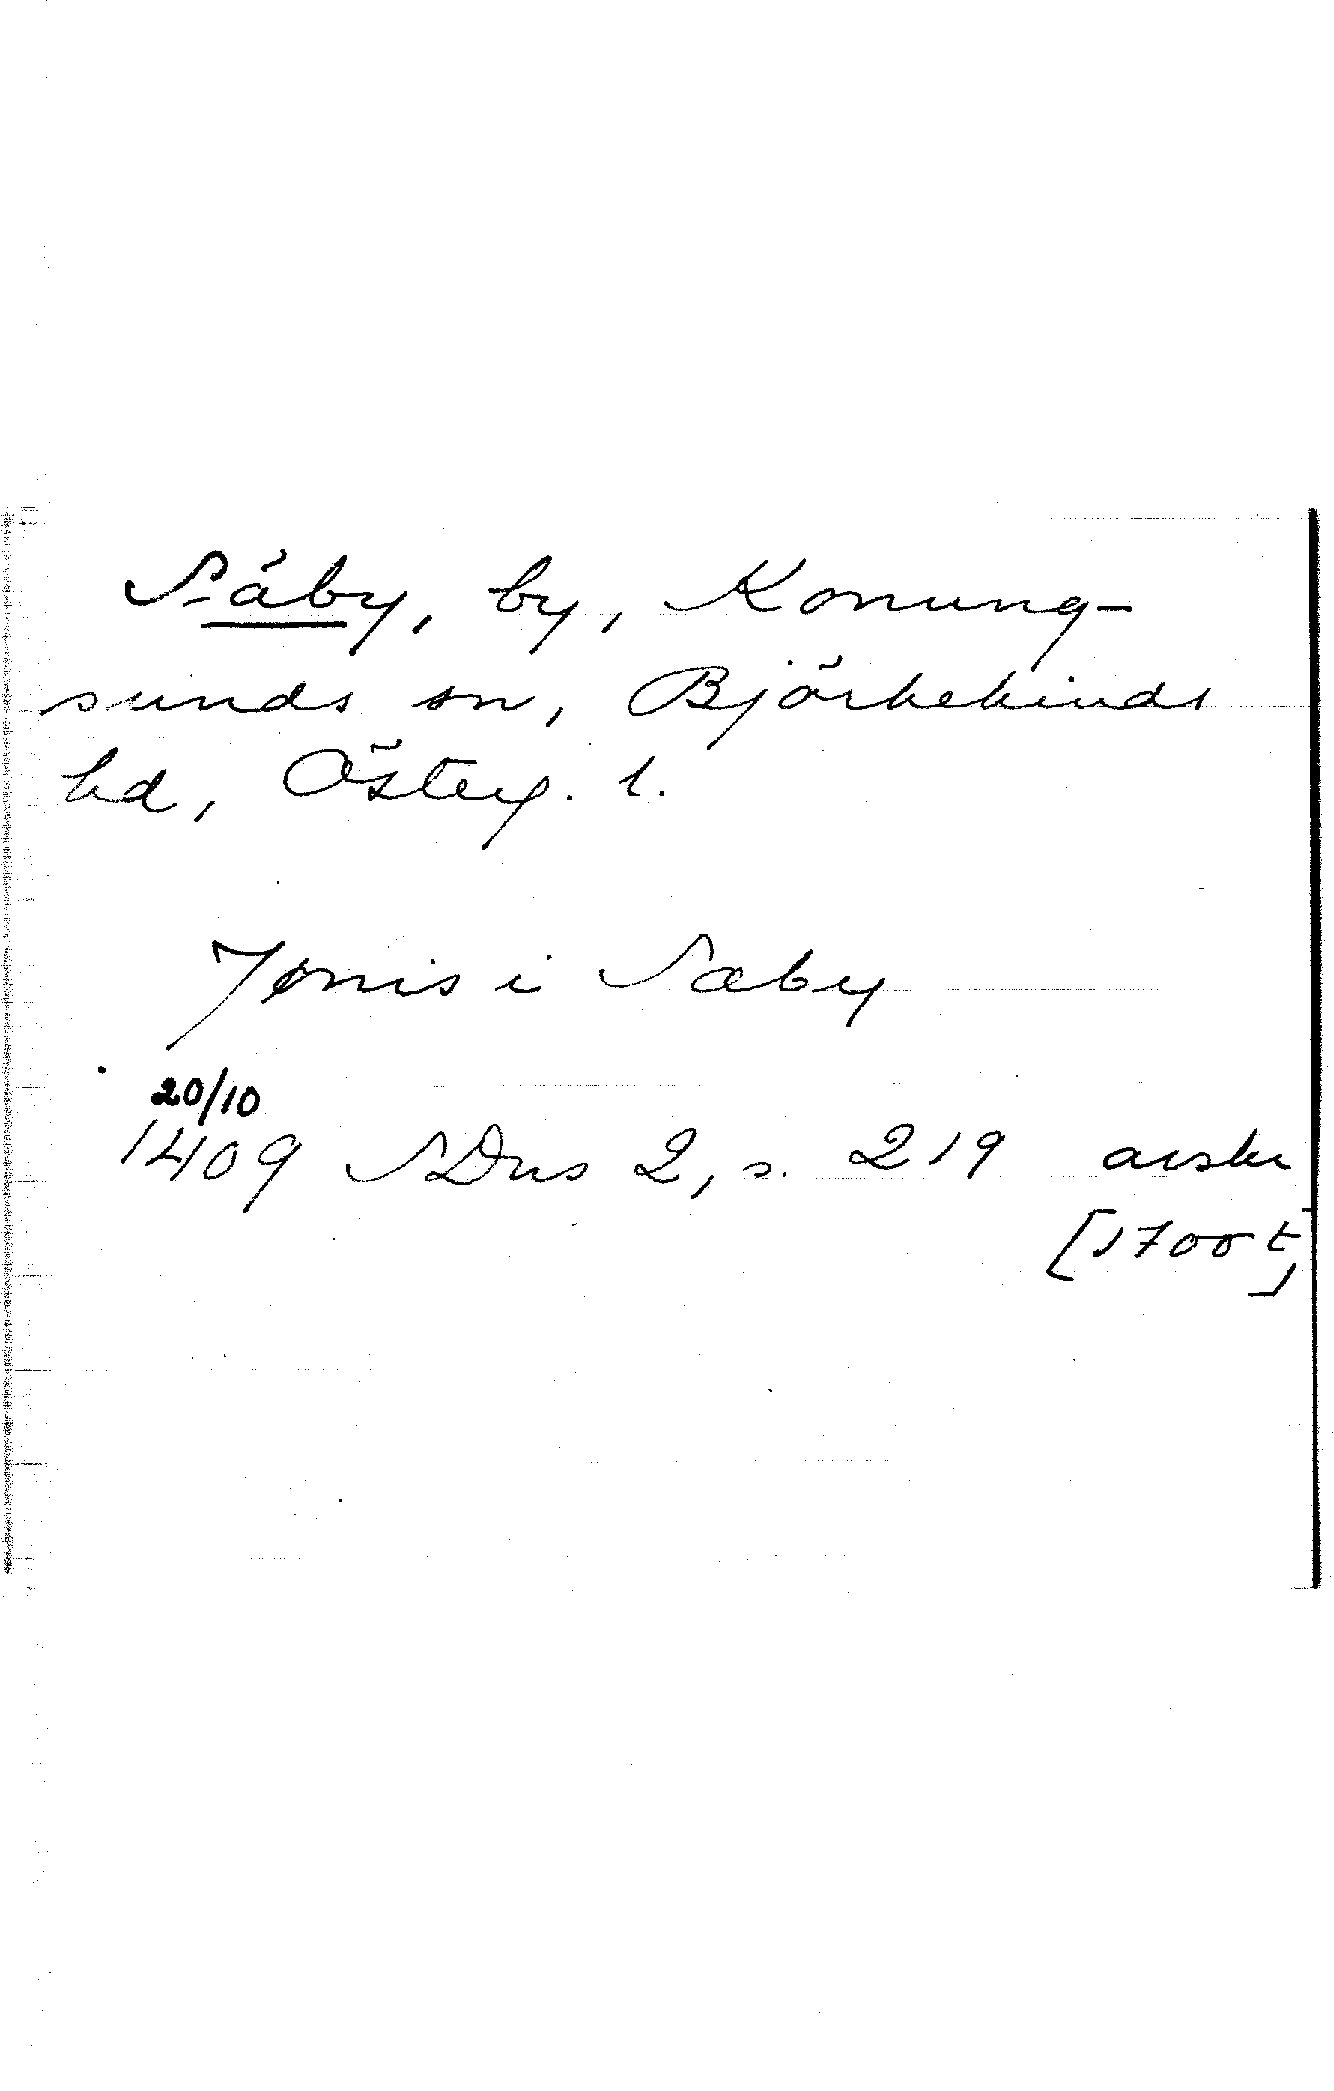 Säby, by, Konung-
sunds sn, Björkekinds
hd, Österg. l.
Jønis i Sæby
20/10
1409 SDns 2, s. 219 avskr
[1700 t]